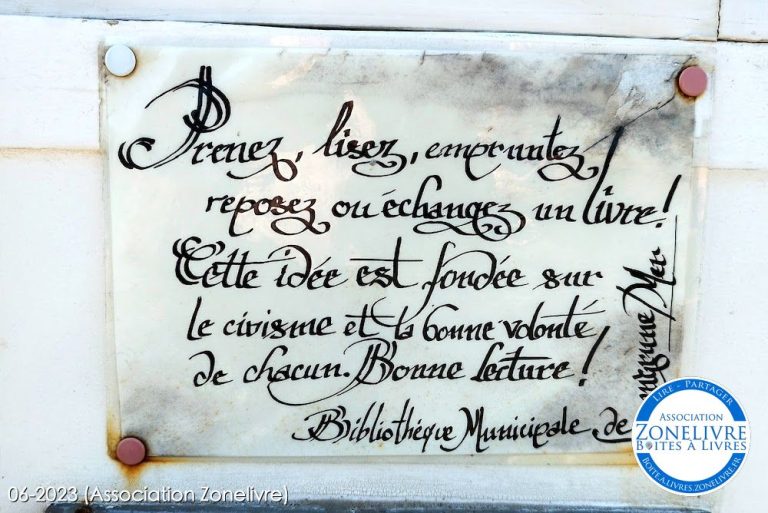 Prenez, lisez, empruntez,
reposez ou échangez un livre!
Cette idée est fondée sur
le civisme et la bonne volonté
de chacun. Bonne lecture!
Bibliothèque Municipale de
Mer
LIRE - PARTAGER
ASSOCIATION
ZONELIVRE
BOITES À LIVRES
BOITE.A.LIVRES.ZONELIVRE.FR
06-2023 (Association Zonelivre)